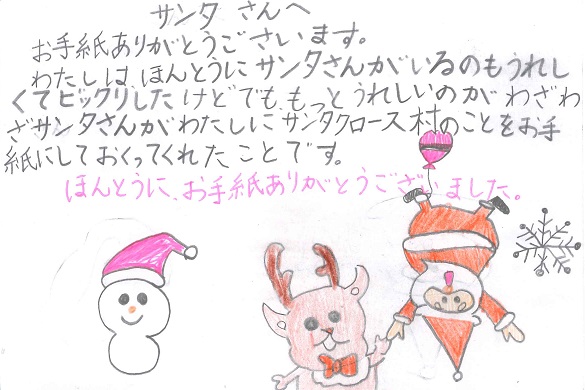 サンタ さんへ
お手紙ありがとうございます。
わたしは、ほんとうにサンタさんがいるのもうれし
くてビックリしたけどでも、もっとうれしいのがわざわ
ざサンタさんがわたしにサンタクロース村のことをお手
紙にしておくってくれたことです。
ほんとうに、お手紙ありがとうございました。